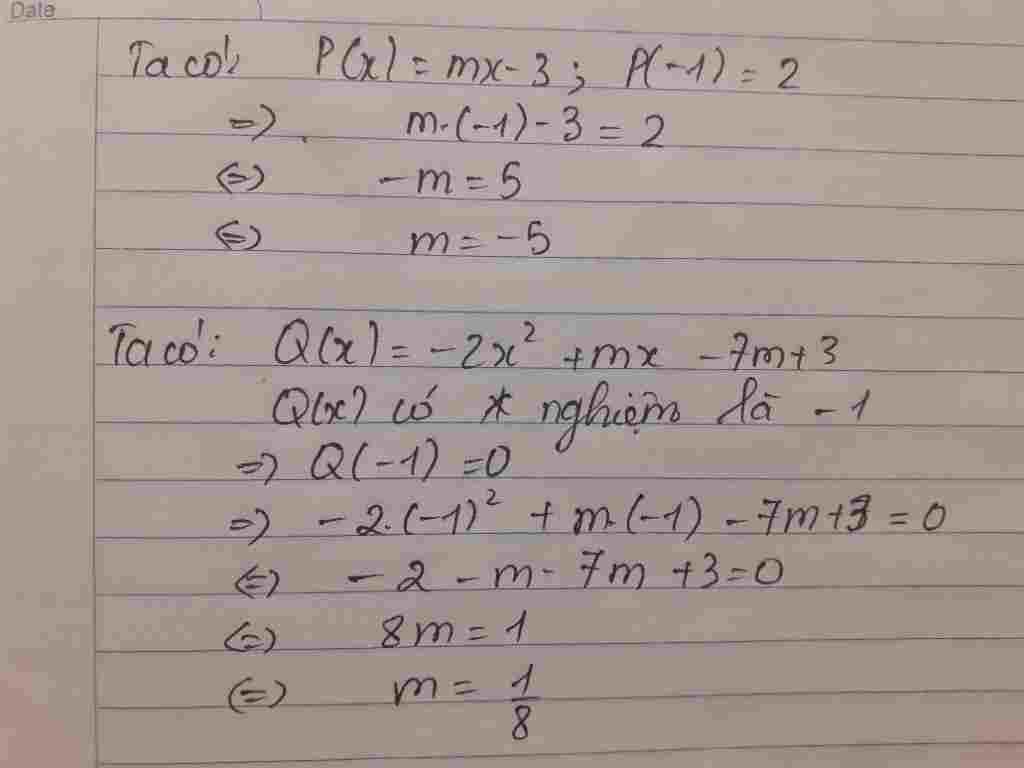 Date
Ta có: P(x) = mx - 3 ; P(-1) = 2
=> m.(-1) - 3 = 2
<=> -m = 5
<=> m = -5
Ta có: Q(x) = -2x² + mx - 7m + 3
Q(x) có nghiệm là -1
=> Q(-1) = 0
=> -2.(-1)² + m.(-1) - 7m + 3 = 0
<=> -2 - m - 7m + 3 = 0
<=> 8m = 1
<=> m = 1/8